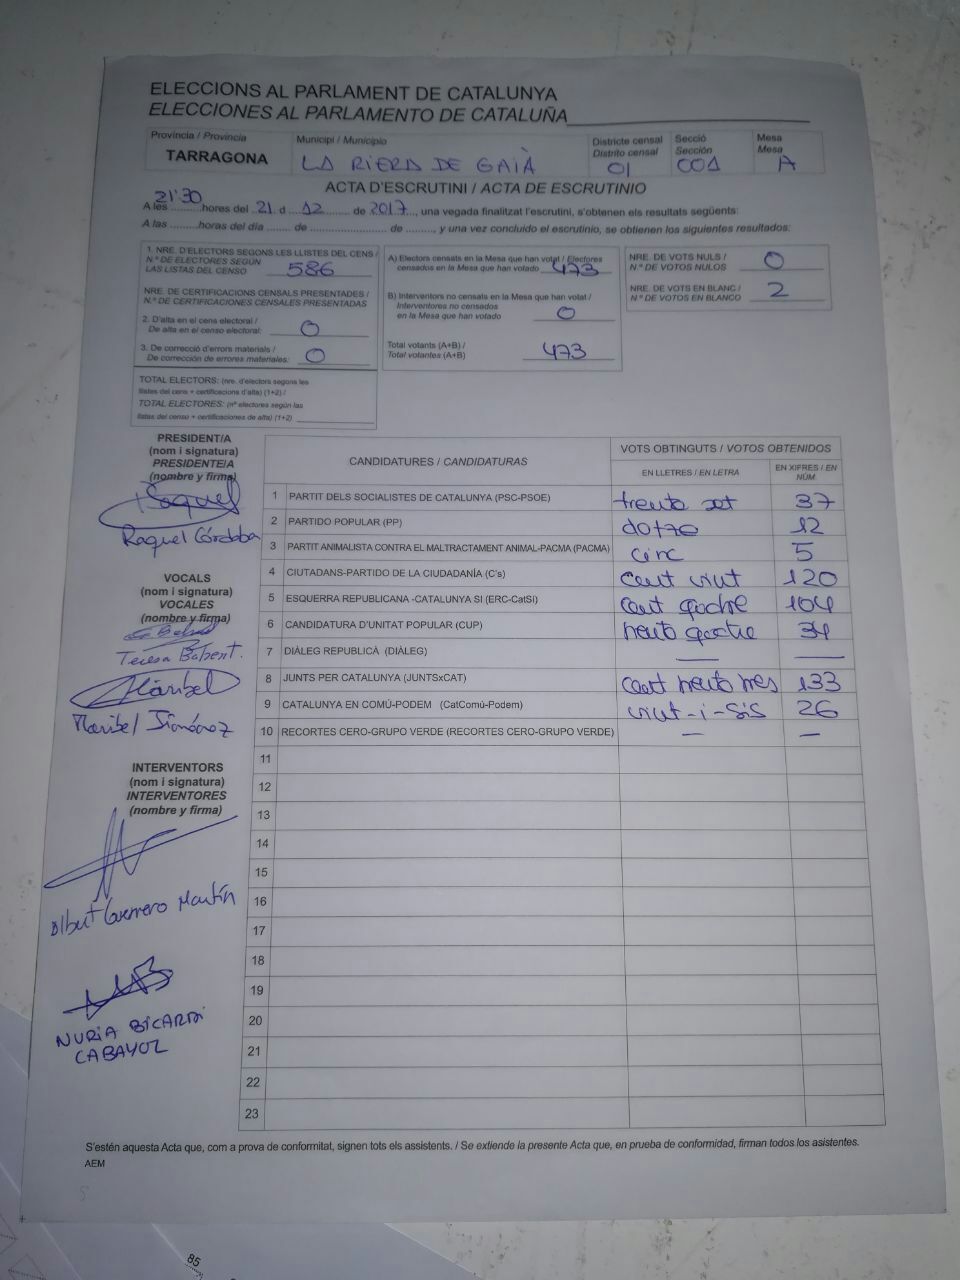 ELECCIONS AL PARLAMENT DE CATALUNYA
ELECCIONES AL PARLAMENTO DE CATALUÑA
Província / Provincia Municipi / Municipio Districte censal Secció Mesa
Distrito censal Sección Mesa
TARRAGONA LA RIERA DE GAIÀ 01 001 A
ACTA D'ESCRUTINI / ACTA DE ESCRUTINIO
A les 21'30 hores del 21 d 12 de 2017, una vegada finalitzat l'escrutini, s'obtenen els resultats següents:
A las .........horas del día ....... de .......................... de ........., y una vez concluido el escrutinio, se obtienen los siguientes resultados:
1. NRE. D'ELECTORS SEGONS LES LLISTES DEL CENS /
N.º DE ELECTORES SEGÚN
LAS LISTAS DEL CENSO 586
NRE. DE CERTIFICACIONS CENSALS PRESENTADES /
N.º DE CERTIFICACIONES CENSALES PRESENTADAS
2. D'alta en el cens electoral /
De alta en el censo electoral: 0
3. De correcció d'errors materials /
De corrección de errores materiales: 0
TOTAL ELECTORS: (nre. d'electors segons les
llistes del cens + certificacions d'alta) (1+2) /
TOTAL ELECTORES: (nº electores según las
listas del censo + certificaciones de alta) (1+2)
A) Electors censats en la Mesa que han votat / Electores
censados en la Mesa que han votado 473
B) Interventors no censats en la Mesa que han votat /
Interventores no censados
en la Mesa que han votado 0
Total votants (A+B) /
Total votantes (A+B) 473
NRE. DE VOTS NULS /
N.º DE VOTOS NULOS 0
NRE. DE VOTS EN BLANC /
N.º DE VOTOS EN BLANCO 2
PRESIDENT/A
(nom i signatura)
PRESIDENTE/A
(nombre y firma)
Raquel
Raquel Córdoba
VOCALS
(nom i signatura)
VOCALES
(nombre y firma)
Teresa
Maribel
Maribel Jiménez
INTERVENTORS
(nom i signatura)
INTERVENTORES
(nombre y firma)
Albert Guerrero Martín
NURIA
CABAYOL
CANDIDATURES / CANDIDATURAS VOTS OBTINGUTS / VOTOS OBTENIDOS
EN LLETRES / EN LETRA EN XIFRES / EN NÚM.
1 PARTIT DELS SOCIALISTES DE CATALUNYA (PSC-PSOE) trenta set 37
2 PARTIDO POPULAR (PP) dotze 12
3 PARTIT ANIMALISTA CONTRA EL MALTRACTAMENT ANIMAL-PACMA (PACMA) cinc 5
4 CIUTADANS-PARTIDO DE LA CIUDADANÍA (C's) cent vint 120
5 ESQUERRA REPUBLICANA -CATALUNYA SI (ERC-CatSí) cent quatre 104
6 CANDIDATURA D'UNITAT POPULAR (CUP) trenta quatre 34
7 DIÀLEG REPUBLICÀ (DIÀLEG) — —
8 JUNTS PER CATALUNYA (JUNTSxCAT) cent trenta tres 133
9 CATALUNYA EN COMÚ-PODEM (CatComú-Podem) vint-i-sis 26
10 RECORTES CERO-GRUPO VERDE (RECORTES CERO-GRUPO VERDE) — —
11
12
13
14
15
16
17
18
19
20
21
22
23
S'estén aquesta Acta que, com a prova de conformitat, signen tots els assistents. / Se extiende la presente Acta que, en prueba de conformidad, firman todos los asistentes.
AEM
85